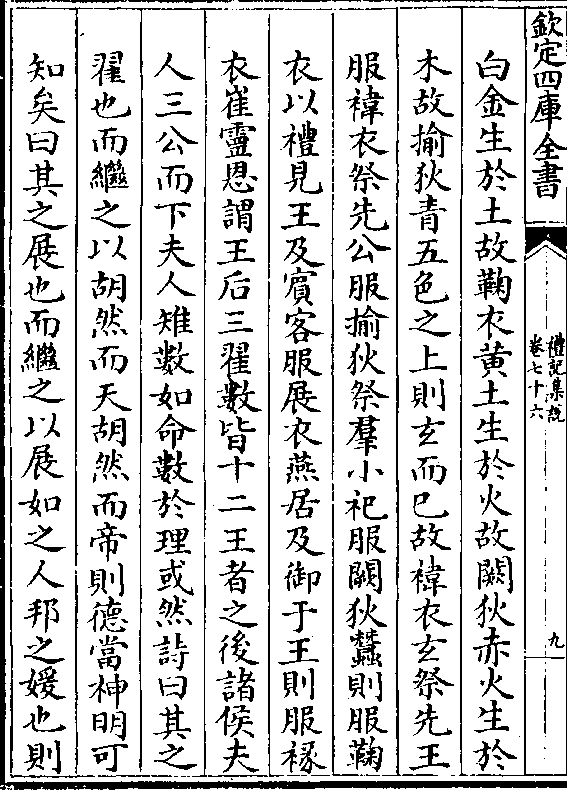 欽定四庫全書
禮記集説
卷七十六
九
白金生於土故鞠衣黄土生於火故闕狄赤火生於
木故揄狄青五色之上則玄而已故褘衣玄祭先王
服褘衣祭先公服揄狄祭羣小祀服闕狄蠶則服鞠
衣以禮見王及賓客服展衣燕居及御于王則服褖
衣崔靈恩謂王后三翟數皆十二王者之後諸侯夫
人三公而下夫人雉數如命數於理或然詩曰其之
翟也而繼之以胡然而天胡然而帝則德當神明可
知矣曰其之展也而繼之以展如之人邦之媛也則